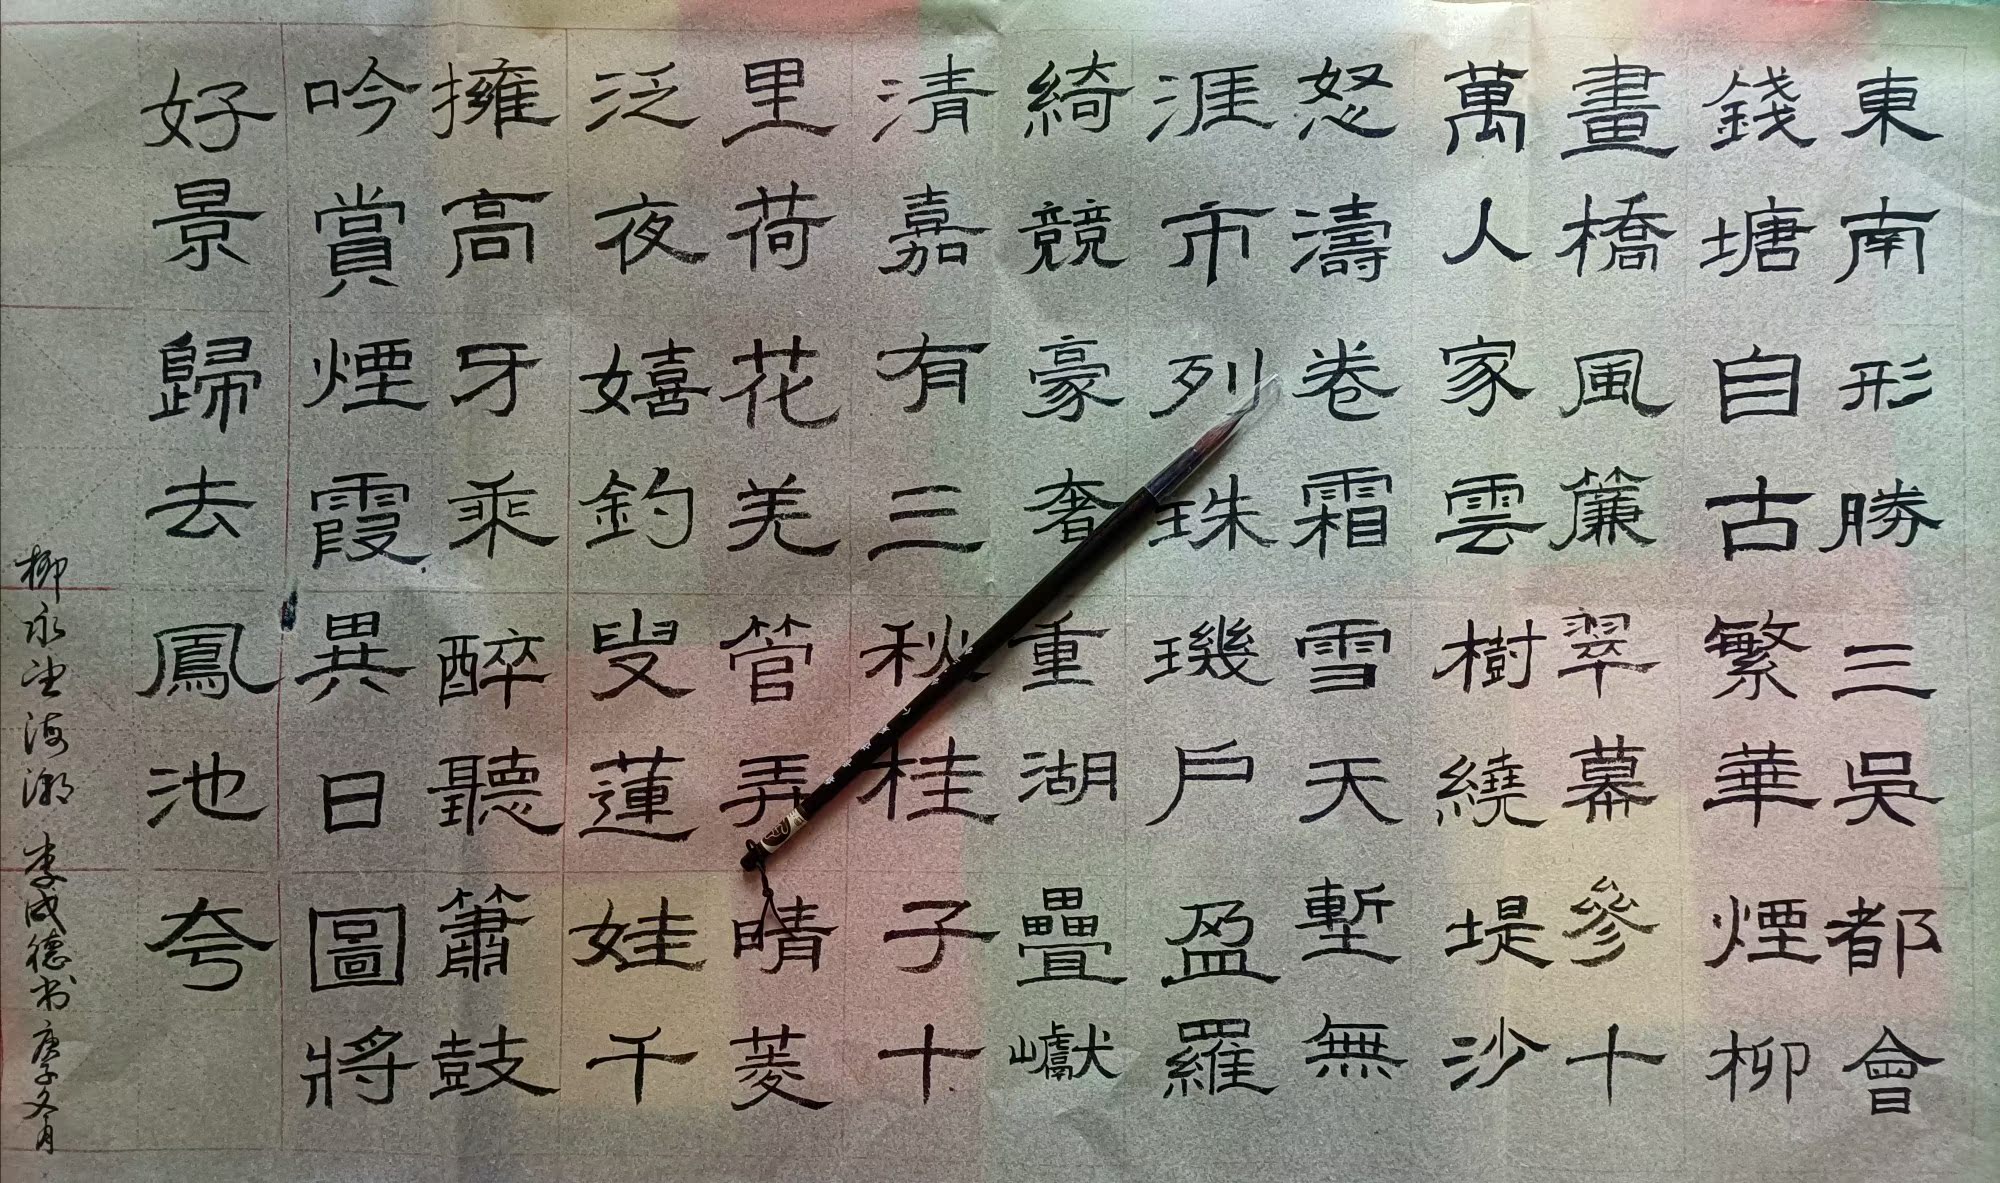 東南形勝三吳都會
錢塘自古繁華煙柳
畫橋風簾翠幕參十
萬人家雲樹繞堤沙
怒濤卷霜雪天塹無
涯市列珠璣戶盈羅
綺競豪奢重湖疊巘
清嘉有三秋桂子十
里荷花羌管弄晴菱
泛夜嬉釣叟蓮娃千
擁高牙乘醉聽簫鼓
吟賞煙霞異日圖將
好景歸去鳳池夸
柳永望海潮 李成德书 庚子冬月